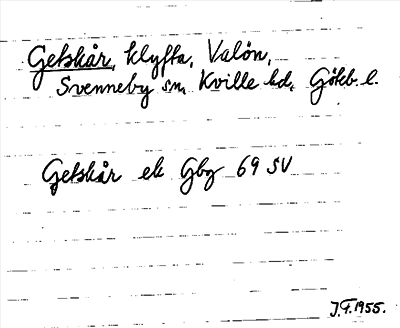 Getskår, klyfta, Valön,
Svenneby sn, Kville hd, Göteb. l.
Getskår ek Gbg 69 SV
J.F. 1955.